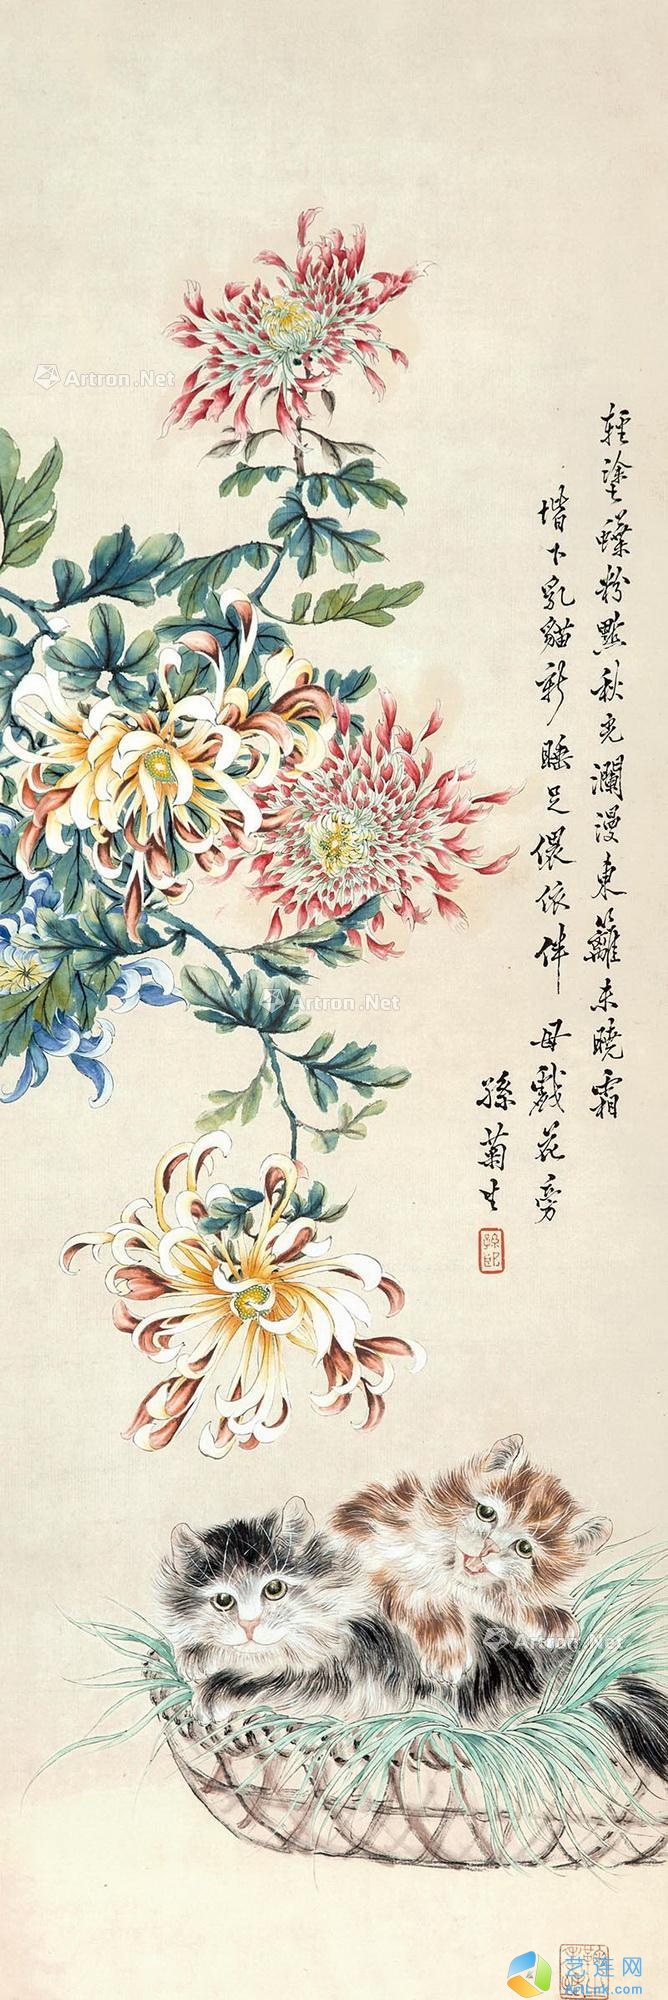 輕塗蝶粉點秋光瀾漫東籬未曉霜
堦下乳貓新睡足偎依伴母戲花旁
孫菊生
Artron.Net
Artron.Net
Artron.Net
艺连网
ArtLnk.com